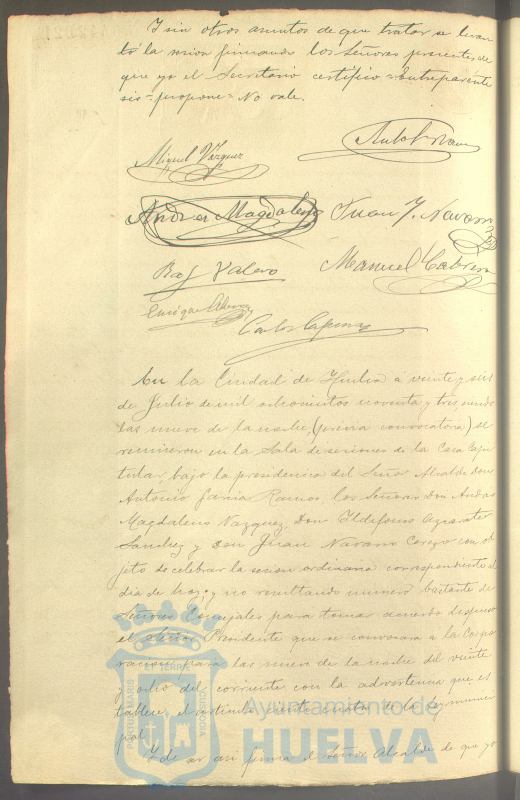 Y sin otros asuntos de que tratar se levan
tó la sesion firmando los Señores presentes de
que yo el Secretario certifico = Entreparente
sis = propone = No vale.
Miguel Vazquez
Andres Magdaleno Juan J. Navarro
Raf Valero Manuel Cabrera
Enrique
Carlos
En la Ciudad de Huelva á veinte y seis
de Julio de mil ochocientos noventa y tres siendo
las nueve de la noche, (previa convocatoria) se
reunieron en la Sala de sesiones de la Casa Capi
tular, bajo la presidencia del Señor Alcalde don
Antonio Garcia Ramos los Señores Don Andres
Magdaleno Vazquez, Don Ildefonso
Sanchez y Don Juan Navarro con ob
jeto de celebrar la sesion ordinaria correspondiente al
dia de hoy; y no resultando numero bastante de
Señores Concejales para tomar acuerdo dispuso
el Señor Presidente que se convocara a la Corpo
racion para las nueve de la noche del veinte
y ocho del corriente con la advertencia que es
tablece el articulo ciento cuatro de la Ley munici
pal.
Y de ser asi firma el Señor Alcalde de que yo
PORTUS MARIS ET TERRÆ CUSTODIA
Ayuntamiento de
HUELVA